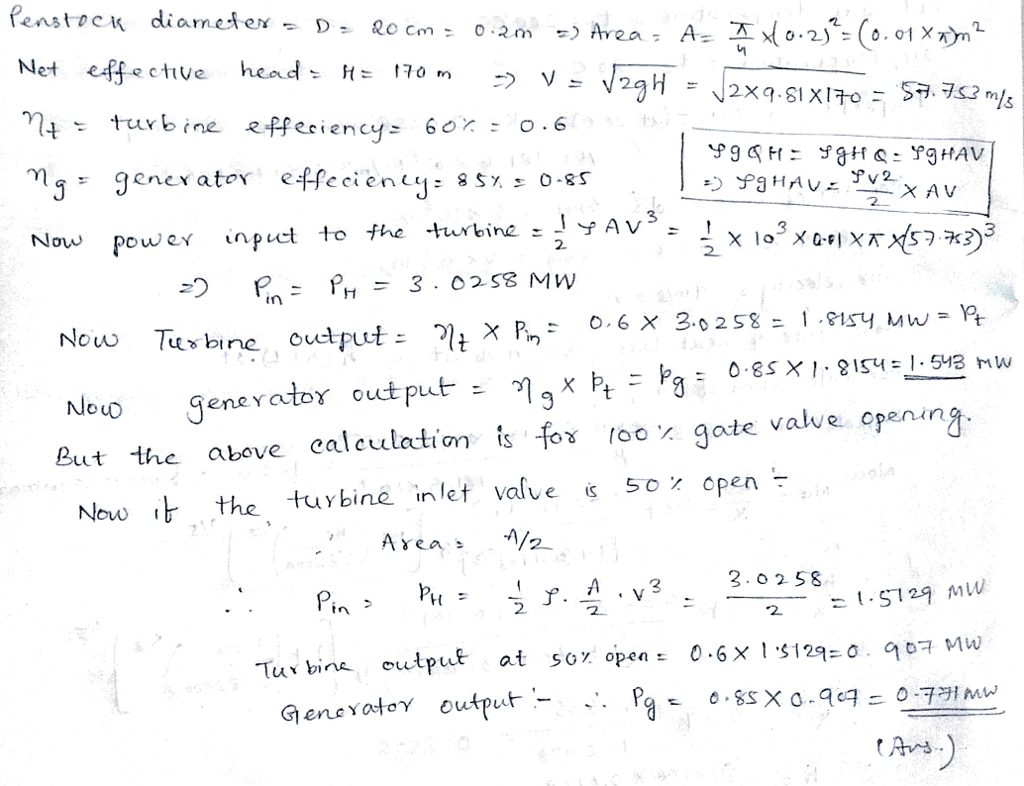 Penstock diameter = D = 20 cm = 0.2m => Area = A = π/4 x(0.2)² = (0.01 x π)m²
Net effective head = H = 170 m => V = √2gH = √2x9.81x170 = 57.753 m/s
ηt = turbine effeciency = 60% = 0.6
ρgQH = ρgHQ = ρgHAV
ηg = generator effeciency = 85% = 0.85
=> ρgHAV = ρv2/2 x AV
Now power input to the turbine = 1/2 ρAV³ = 1/2 x 10³ x 0.01 x π x(57.753)³
=> Pin = PH = 3.0258 MW
Now Turbine output = ηt x Pin = 0.6 x 3.0258 = 1.8154 MW = Pt
Now generator output = ηg x Pt = Pg = 0.85 x 1.8154 = 1.543 MW
But the above calculation is for 100% gate valve opening.
Now if the turbine inlet valve is 50% open :-
Area = A/2
∴ Pin = PH = 1/2 ρ. A/2 . v³ = 3.0258/2 = 1.5129 MW
Turbine output at 50% open = 0.6 x 1.5129 = 0.907 MW
Generator output :- ∴ Pg = 0.85 x 0.907 = 0.771 MW
(Ans.)